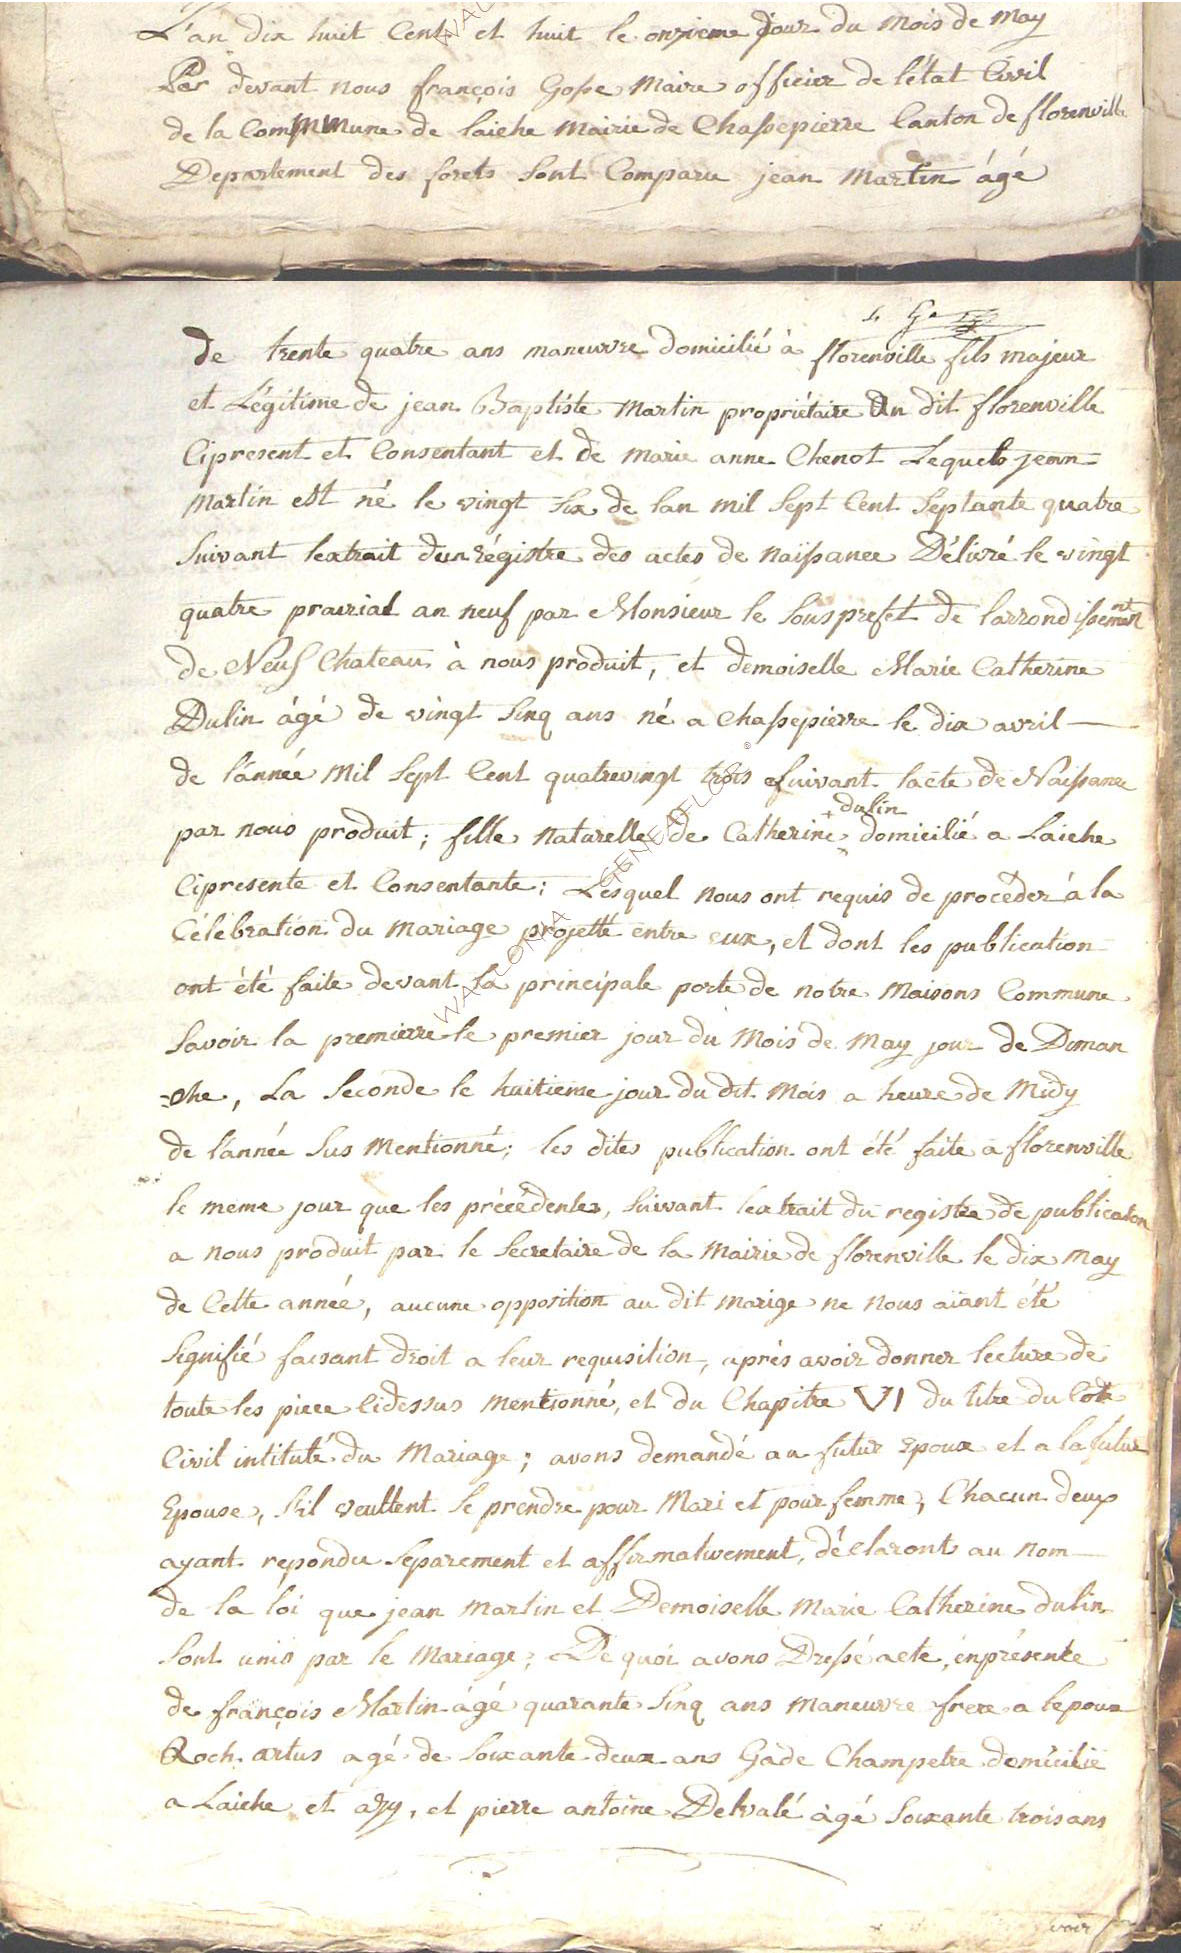 L'an dix huit Cent et huit le onzieme jour du Mois de May
Par devant nous françois Gosse Maire officier de l'état Civil
de la Commmune de Laiche Mairie de Chassepierre Canton de florenville
Departement des forets Sont Comparu jean Martin âgé
de trente quatre ans maneuvre domicilié à florenville fils majeur
et Légitime de jean Baptiste Martin propriétaire du dit florenville
Cipresent et Consentant et de Marie anne Chenot Lequels jean
Martin est né le vingt Six de lan mil Sept Cent Septante quatre
Suivant lextrait dun régistre des actes de naissance Délivré le vingt
quatre prairial an neuf par Monsieur le Sousprefet de larrondissement
de Neuf Chateau à nous produit, et demoiselle Marie Catherine
Dulin âgé de vingt Sinq ans né a Chassepierre le dix avril
de l'année Mil Sept Cent quatrevingt trois Suivant lacte de Naissance
par nous produit; fille naturelle de Catherine + dulin domicilié a Laiche
Cipresente et Consentante; Lesquel nous ont requis de procéder à la
Célébration du Mariage projetté entre eux, et dont les publication
ont été faite devant la principale porte de notre Maisons Commune
Savoir la premierre le premier jour du Mois de May jour de Diman
=che, La Seconde le huitieme jour du dit Mois a heure de Midy
de l'année Sus Mentionné; les dites publication ont été faite a florenville
le meme jour que les précédentes, Suivant lextrait du registre de publication
a nous produit par le Secretaire de la Mairie de florenville le dix May
de Cette année, aucune opposition au dit marige ne nous aïant été
Signifié faisant droit a leur requisition, après avoir donner lecture de
toute les piece Cidessus mentionné, et du Chapitre VI du titre du Code
Civil intitulé du Mariage; avons demandé au futur Epoux et a la futur
Epouse, S'il veullent Se prendre pour Mari et pour femme, Chacun deux
ayant repondu Séparement et affirmativement, déclaront au nom
de la loi que jean Martin et Demoiselle Marie Catherine dulin
Sont unis par le Mariage; De quoi avons Dressé acte, en présente
de françois Martin âgé quarante Sinq ans Maneuvre frere a lepoux
Roch artus agé de Soixante deux ans Gade Champetre domicilié
a Laiche et azy, et pierre antoine Delvalé âgé Soixante trois ans